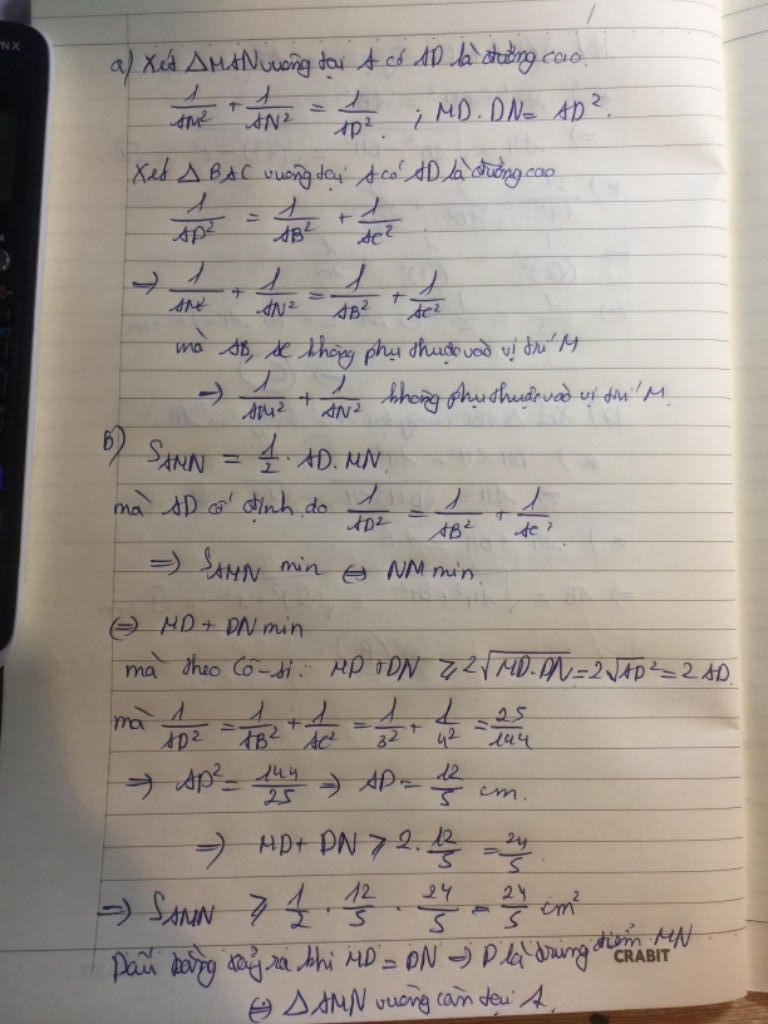 a) Xét △MAN vuông tại A có AD là đường cao
1/AM² + 1/AN² = 1/AD². ; MD.DN = AD².
Xét △BAC vuông tại A có AD là đường cao
1/AD² = 1/AB² + 1/AC²
→ 1/AM² + 1/AN² = 1/AB² + 1/AC²
mà AB, AC không phụ thuộc vào vị trí M
→ 1/AM² + 1/AN² không phụ thuộc vào vị trí M.
b) S_AMN = 1/2 . AD.MN.
mà AD cố định do 1/AD² = 1/AB² + 1/AC²
⇒ S_AMN min ⇔ NM min.
⇔ MD + DN min
mà theo Cô-si: MD + DN ≥ 2√MD.DN = 2√AD² = 2AD.
mà 1/AD² = 1/AB² + 1/AC² = 1/3² + 1/4² = 25/144
⇒ AD² = 144/25 ⇒ AD = 12/5 cm.
⇒ MD + DN ≥ 2. 12/5 = 24/5.
⇒ S_AMN ≥ 1/2 . 12/5 . 24/5 = 24/5 cm²
Dấu bằng xảy ra khi MD = DN ⇒ D là trung điểm MN
CRABIT
⇔ △AMN vuông cân tại A.